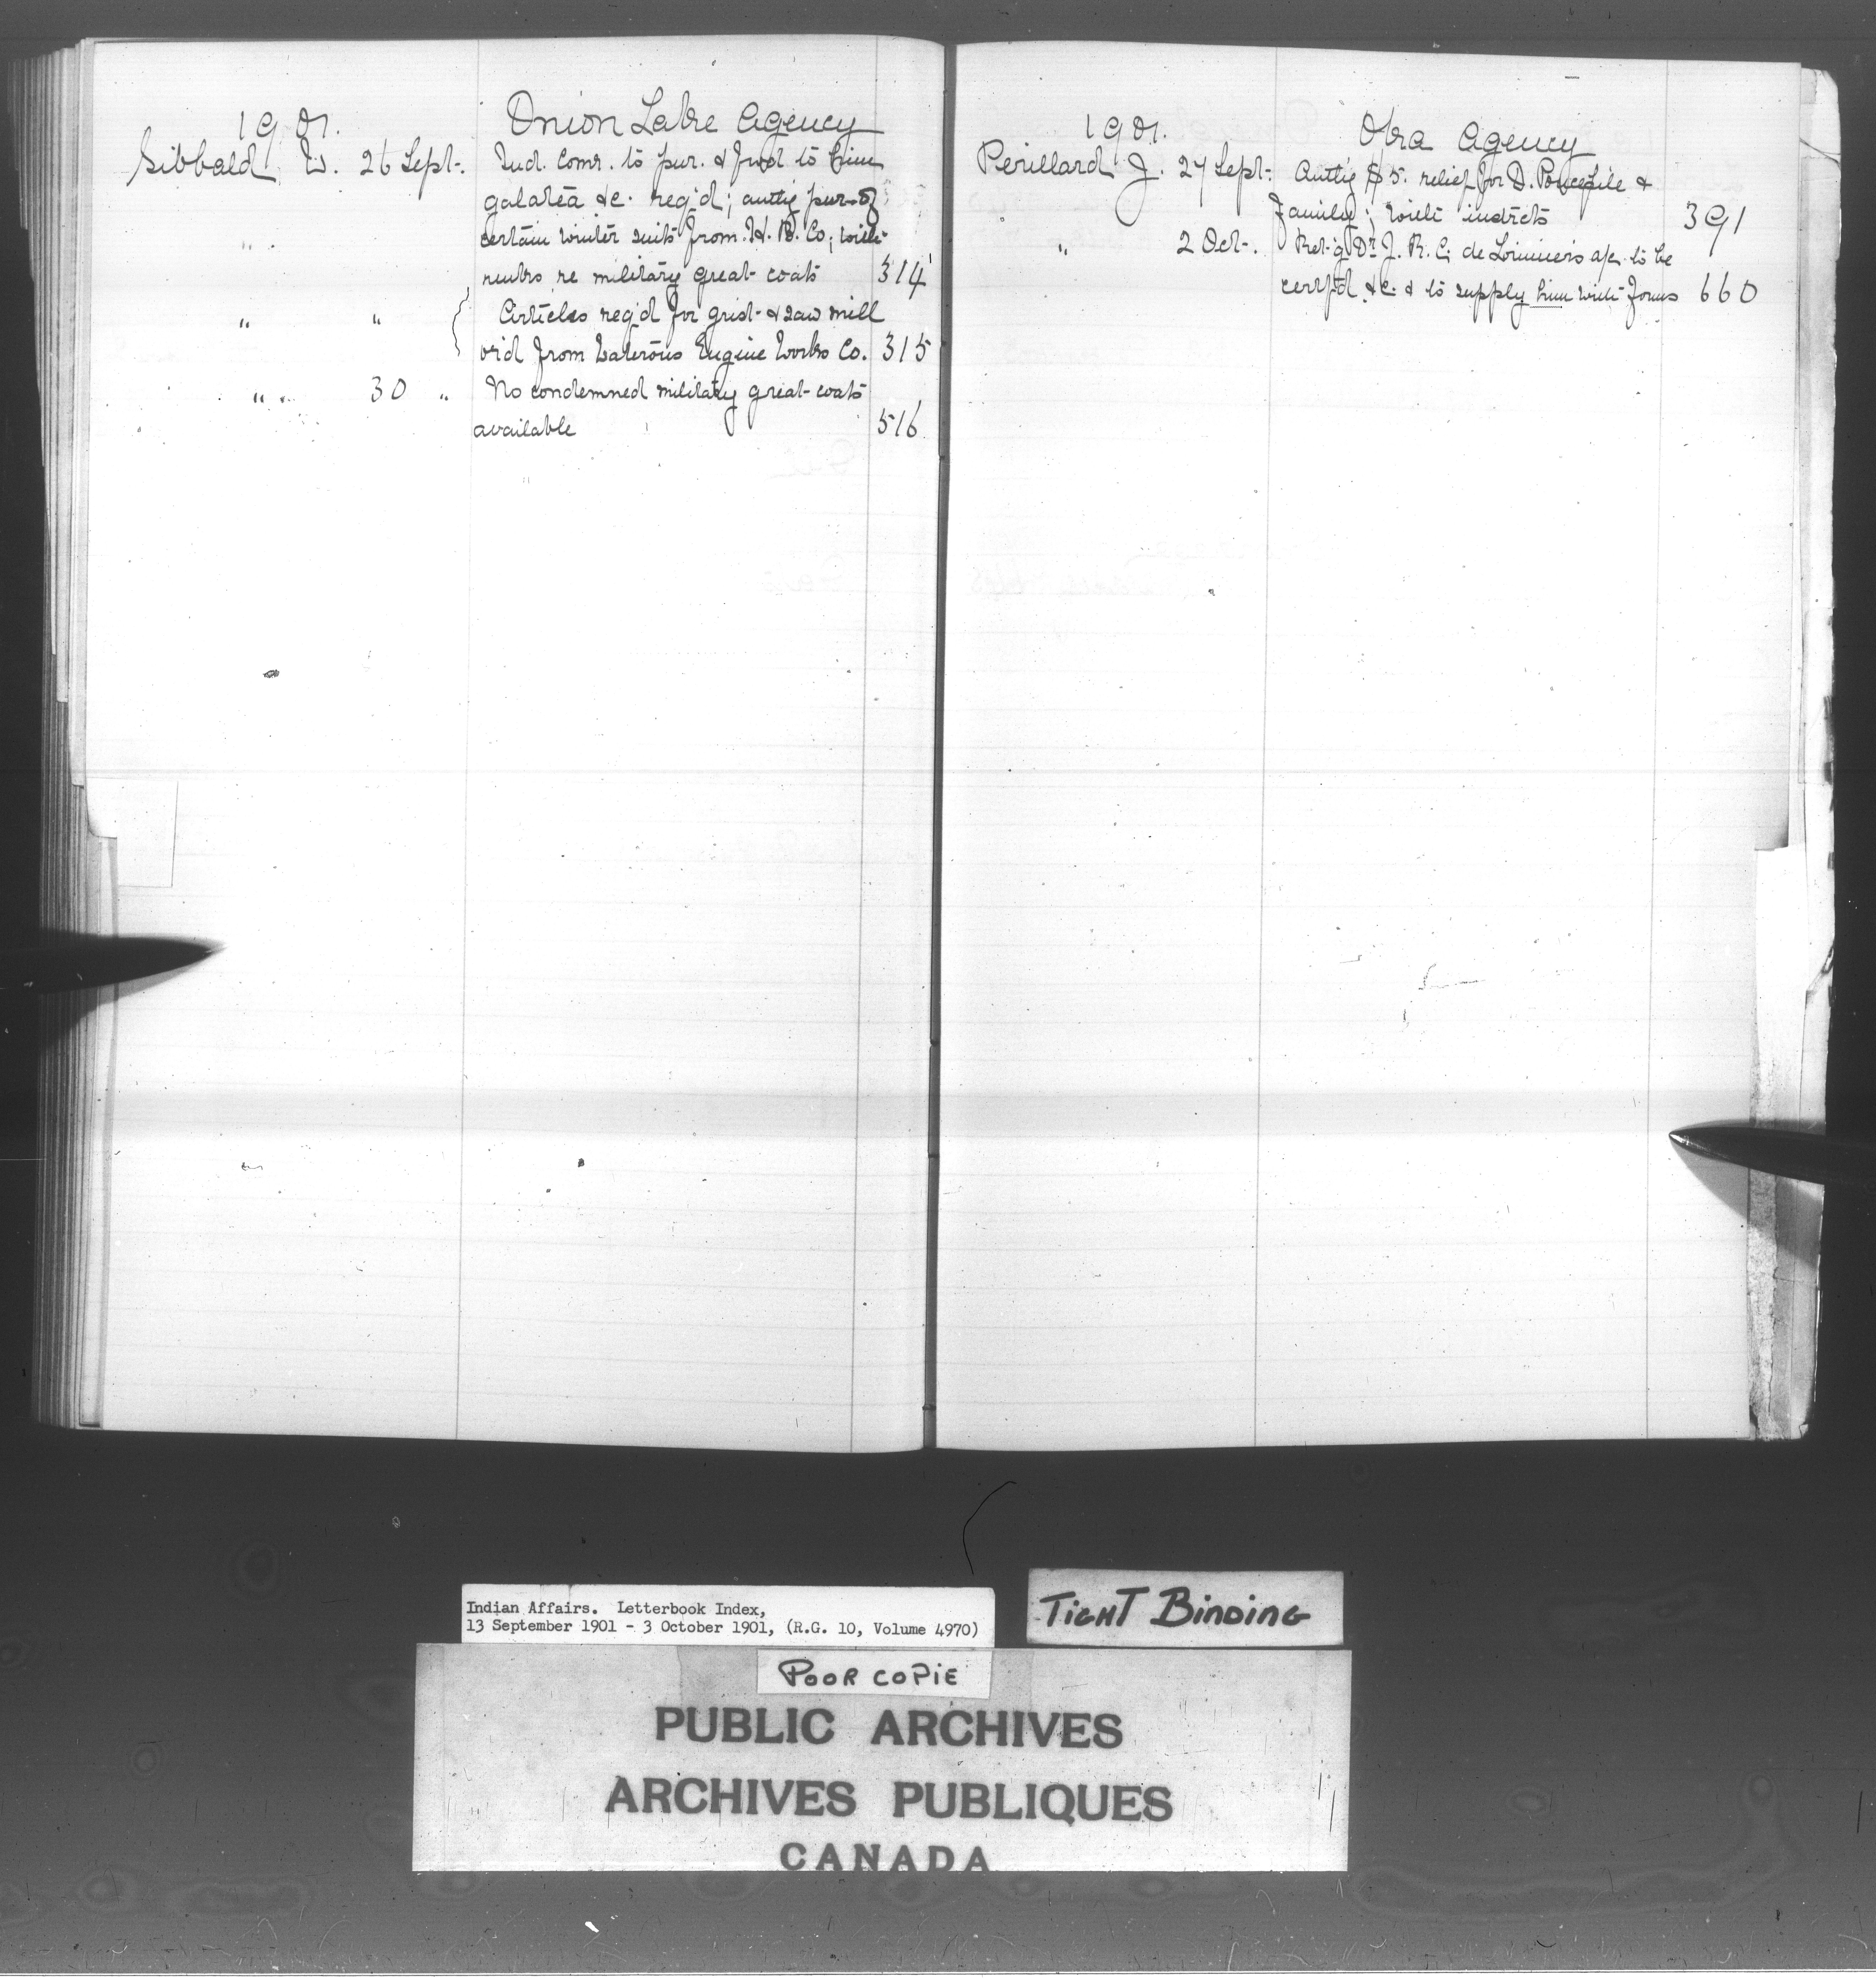 1901. Onion Lake Agency
Sibbald W. 26 Sept. Ind. Comr. to pur. & fwd to him
galatea &c. req'd; auth'g pur. of
" . certain winter suits from H. B. Co; with
remks re military great-coats 314
" " Articles req'd for grist- & saw mill
ord from Waterous Engine Works Co. 315
" . 30 " No condemned military great-coats
available 516
1901. Oka Agency
Perillard J. 27 Sept. Auth'g $5. relief for D. &
family; with instrcts 391
" 2 Oct. Ret'g Dr. J. R. C. de Lorimier's a/c to be
certf'd &c. & to supply him with forms 660
Indian Affairs. Letterbook Index,
13 September 1901 - 3 October 1901, (R.G. 10, Volume 4970)
TIGHT BINDING
POOR COPIE
PUBLIC ARCHIVES
ARCHIVES PUBLIQUES
CANADA